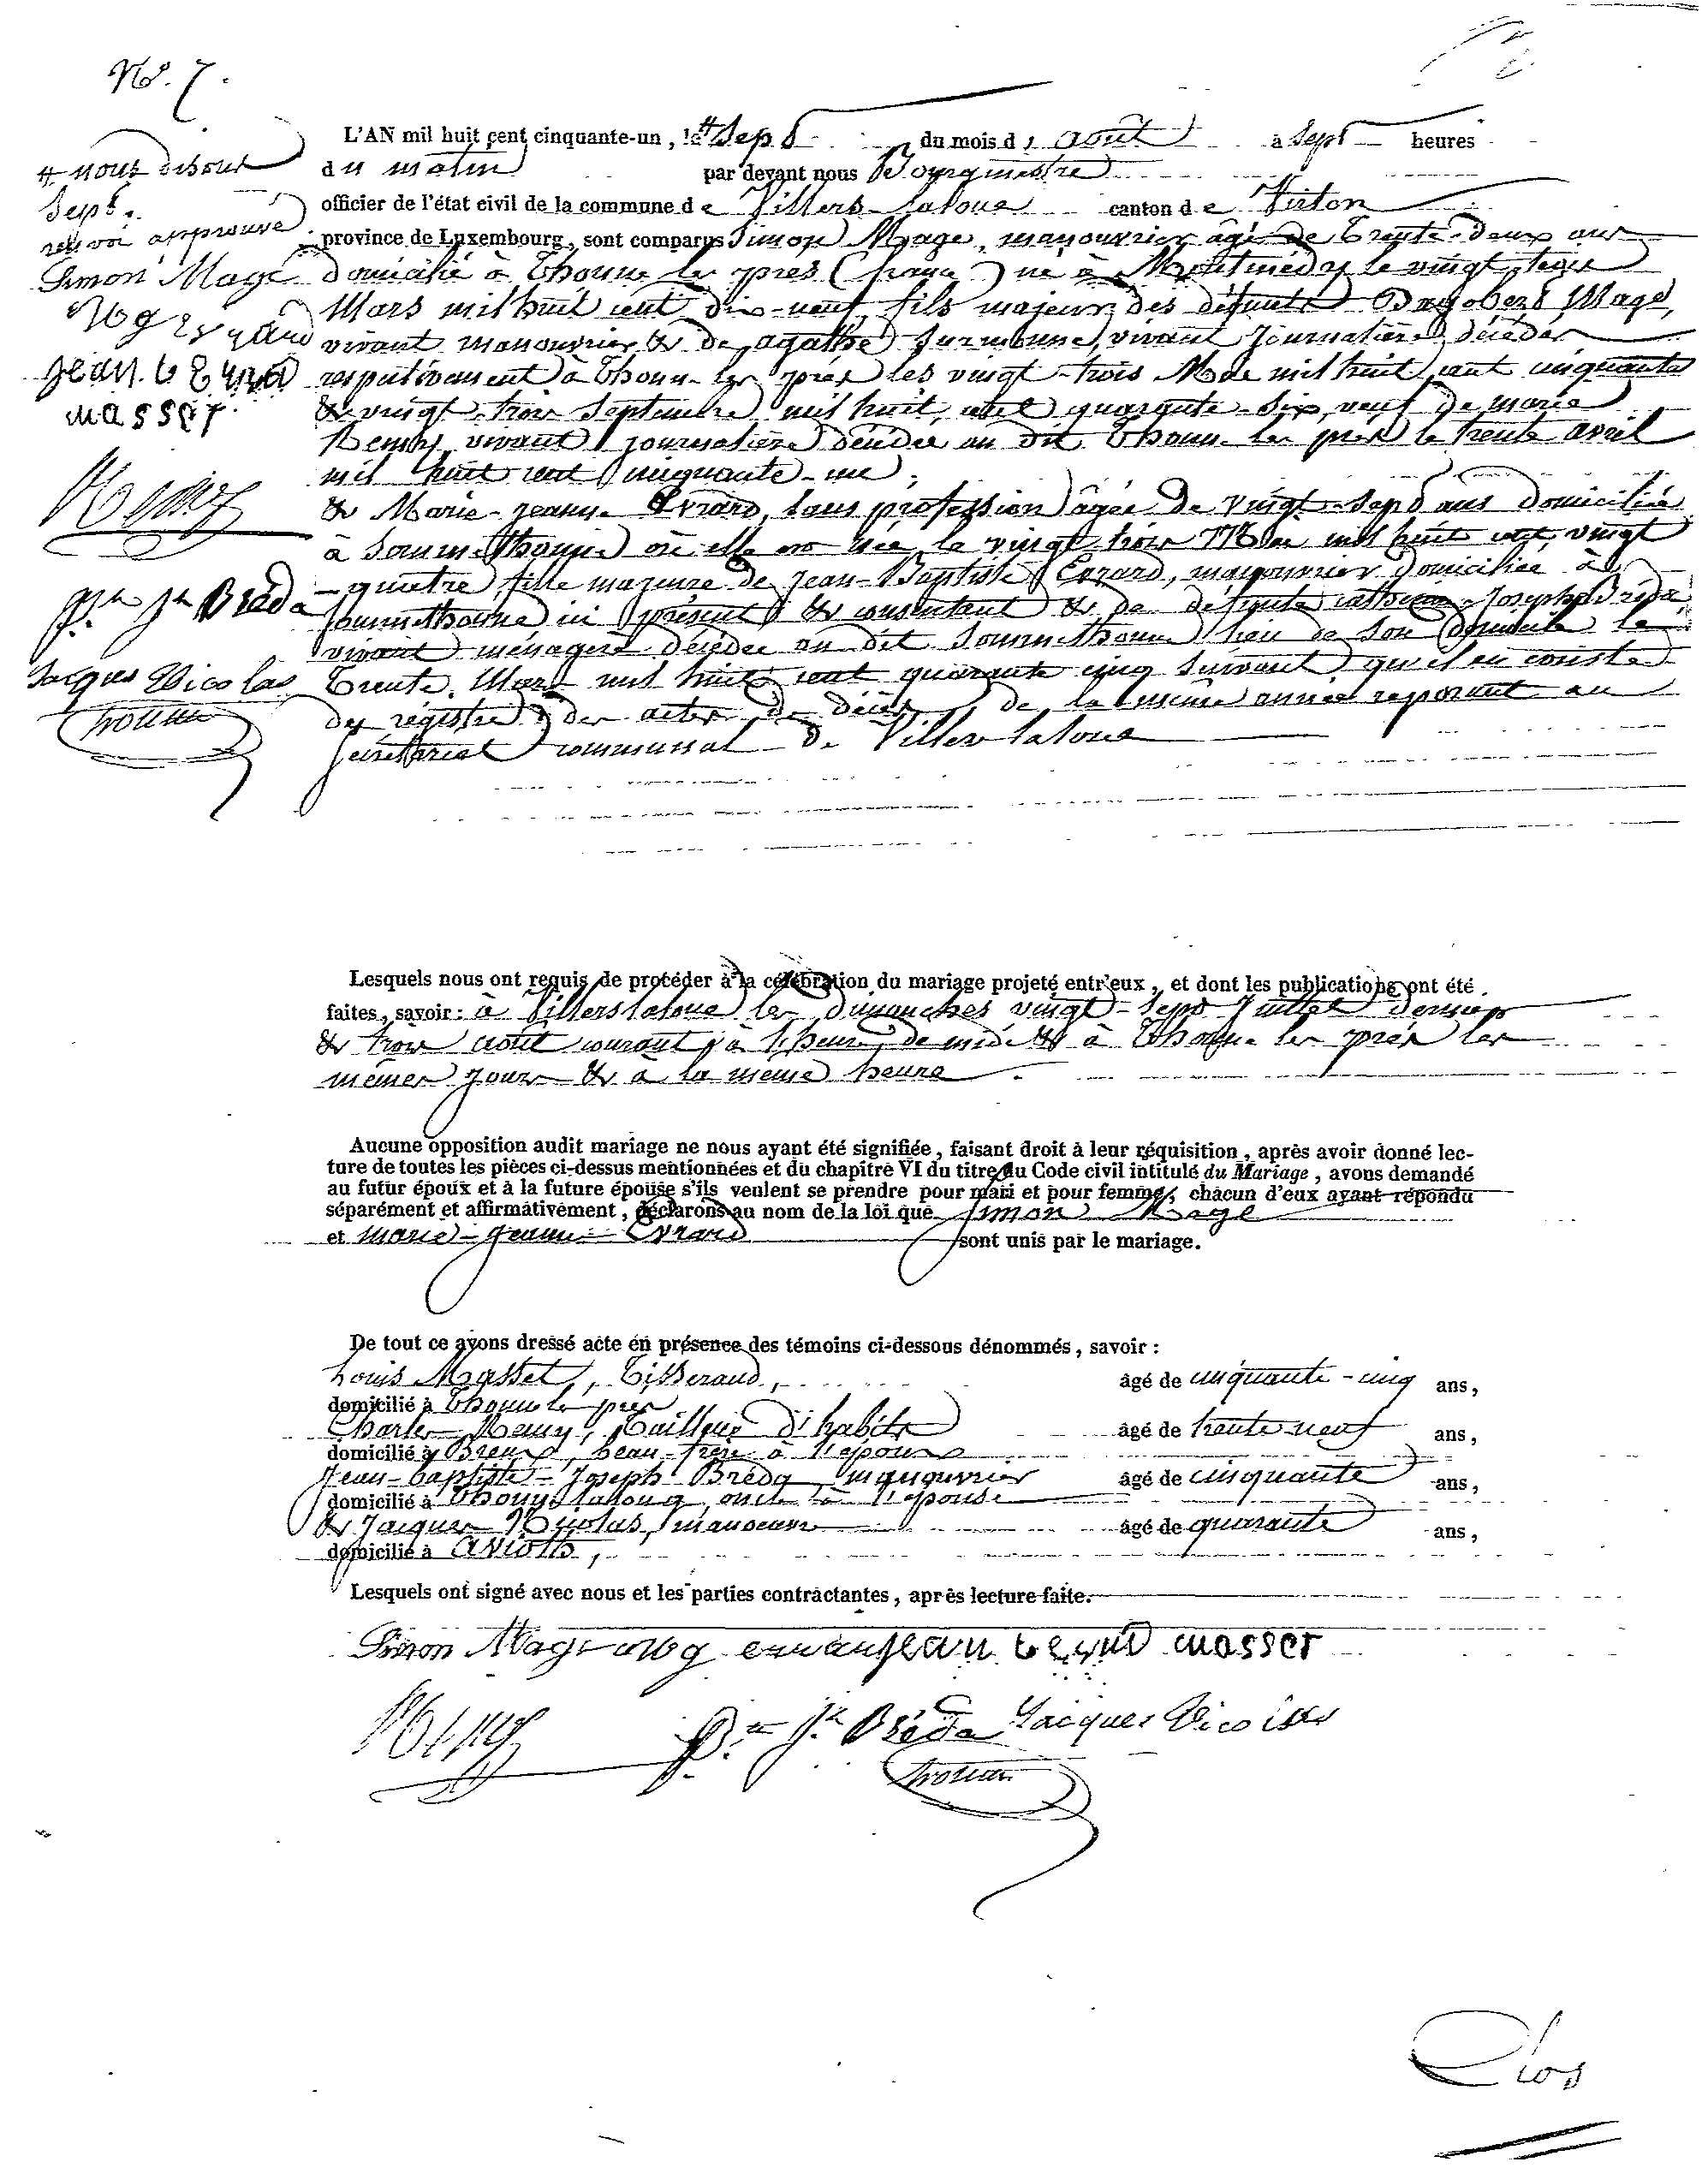 No. 7.
L'AN mil huit cent cinquante-un, le # Sept du mois d'août à Sept heures
du matin par devant nous Bourgmestre
officier de l'état civil de la commune de Villers-laloue canton de Virton
province de Luxembourg, sont comparus Simon Mage, manouvrier âgé de Trente-deux ans
domicilié à Thonne les prés (france) né à Montmédy le vingt-trois
Mars mil huit cent dix-neuf, fils majeur des défunts Dagobert Mage,
vivant manouvrier & de agathe vivant journalière décédés
respectivement à Thonne-les prés les vingt-trois Mai mil huit cent cinquante
& vingt-trois Septembre mil huit cent quarante-six, veuf de marie
Remy, vivant journalière décédée au dit Thonne-les prés le trente avril
mil huit cent cinquante-un;
& Marie-jeanne Evrard, sans profession âgée de vingt-sept ans domiciliée
à Sommethonne où elle est née le vingt-trois Mai mil huit cent vingt
-quatre, fille majeure de Jean-Baptiste Evrard, manouvrier domicilié à
Sommethonne ici présent & consentant & de défunte catherine-Joseph Bréda,
vivant ménagère décédée au dit Sommethonne lieu de son domicile le
Trente Mars mil huit cent quarante cinq suivant qu'il en conste
des registres des actes de décès de la même année reposant au
Secrétariat communal de Villers laloue
# nous disons
Sept.
renvoi approuvé
Simon Mage
M g evrard
jean b evrard
masset
Remy
Bte Jh Bréda
Jacques Nicolas
Lesquels nous ont requis de procéder à la célébration du mariage projeté entr'eux, et dont les publications ont été
faites, savoir: à Villerslaloue les dimanches vingt-sept Juillet dernier
& trois août courant à l'heure de midi & à Thonne les prés les
mêmes jours & à la même heure.
Aucune opposition audit mariage ne nous ayant été signifiée, faisant droit à leur réquisition, après avoir donné lec-
ture de toutes les pièces ci-dessus mentionnées et du chapitre VI du titre du Code civil intitulé du Mariage, avons demandé
au futur époux et à la future épouse s'ils veulent se prendre pour mari et pour femme, chacun d'eux ayant répondu
séparément et affirmativement, déclarons au nom de la loi que Simon Mage
et marie-jeanne Evrard sont unis par le mariage.
De tout ce avons dressé acte en présence des témoins ci-dessous dénommés, savoir:
Louis Masset, Tisserand, âgé de cinquante-cinq ans,
domicilié à Thonne les prés
Charles Remy, Tailleur d'habits âgé de trente neuf ans,
domicilié à Breux, beau-frère à l'époux
Jean-baptiste-Joseph Bréda manouvrier âgé de cinquante ans,
domicilié à Thonne laloue oncle à l'épouse
& Jacques Nicolas, manoeuvre âgé de quarante ans,
domicilié à avioth,
Lesquels ont signé avec nous et les parties contractantes, après lecture faite.
Simon Mage M g evrard jean b evrard masset
Remy Bte Jh Bréda Jacques Nicolas
Clos